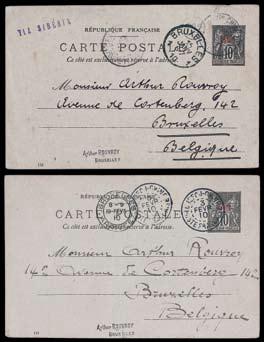 VIA SIBÉRIE
RÉPUBLIQUE FRANÇAISE
CARTE POSTALE
Ce côté est exclusivement réservé à l'adresse.
BRUXELLES
10
Monsieur Arthur Rouvroy
Avenue de Cortenberg, 142
Bruxelles
Belgique
Arthur ROUVROY
BRUXELLES
RÉPUBLIQUE FRANÇAISE
CARTE POSTALE
Ce côté est exclusivement réservé à l'adresse.
10
Monsieur Arthur Rouvroy
142 Avenue de Cortenberg 142
Bruxelles
Belgique
Arthur ROUVROY
BRUXELLES